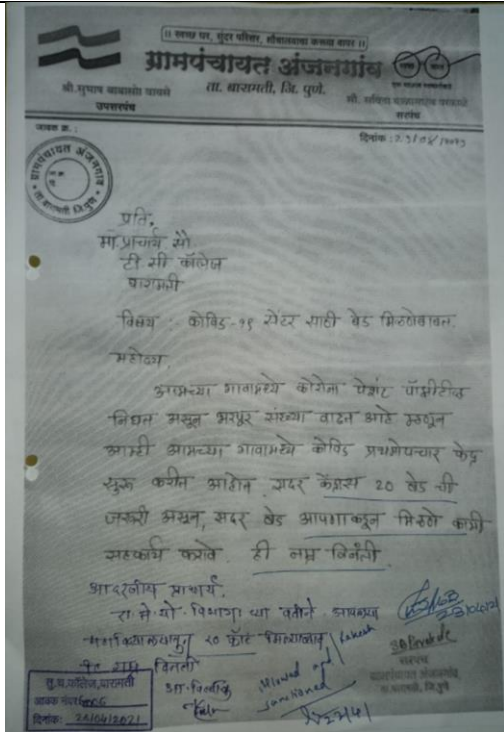 ॥ स्वच्छ घर, सुंदर परिसर, शौचालयाचा करूया वापर ॥
ग्रामपंचायत अंजनगांव
ता. बारामती, जि. पुणे.
श्री. सुभाष बाबासो वायसे
उपसरपंच
सौ. सविता
सरपंच
जावक क्र. :
दिनांक :
ग्रामपंचायत अंजनगांव
ता. बारामती जि. पुणे
प्रति,
मा. प्राचार्य सौ.
टी सी कॉलेज
बारामती
विषय :- कोविड-१९ सेंटर साठी बेड मिळणेबाबत.
महोदय,
आमच्या गावामध्ये कोरोना पेशंट पॉझीटीव्ह
निघत असून भरपूर संख्या वाढत आहे म्हणून
आम्ही आमच्या गावामध्ये कोविड प्रथमोपचार केंद्र
सुरू करीत आहोत. सदर केंद्रास 20 बेड ची
जरूरी असून, सदर बेड आपणाकडून मिळणे कामी
सहकार्य करावे. ही नम्र विनंती.
आदरणीय प्राचार्य,
रा. से. यो. विभागा च्या वतीने आपल्या
महाविद्यालयातून २० कॉट मिळाव्यात
ही नम्र विनंती
Allowed and
sanctioned
सरपंच
ग्रामपंचायत अंजनगांव
ता. बारामती, जि. पुणे
तु. च. कॉलेज, बारामती
आवक नंबर
दिनांक: 26/04/2021